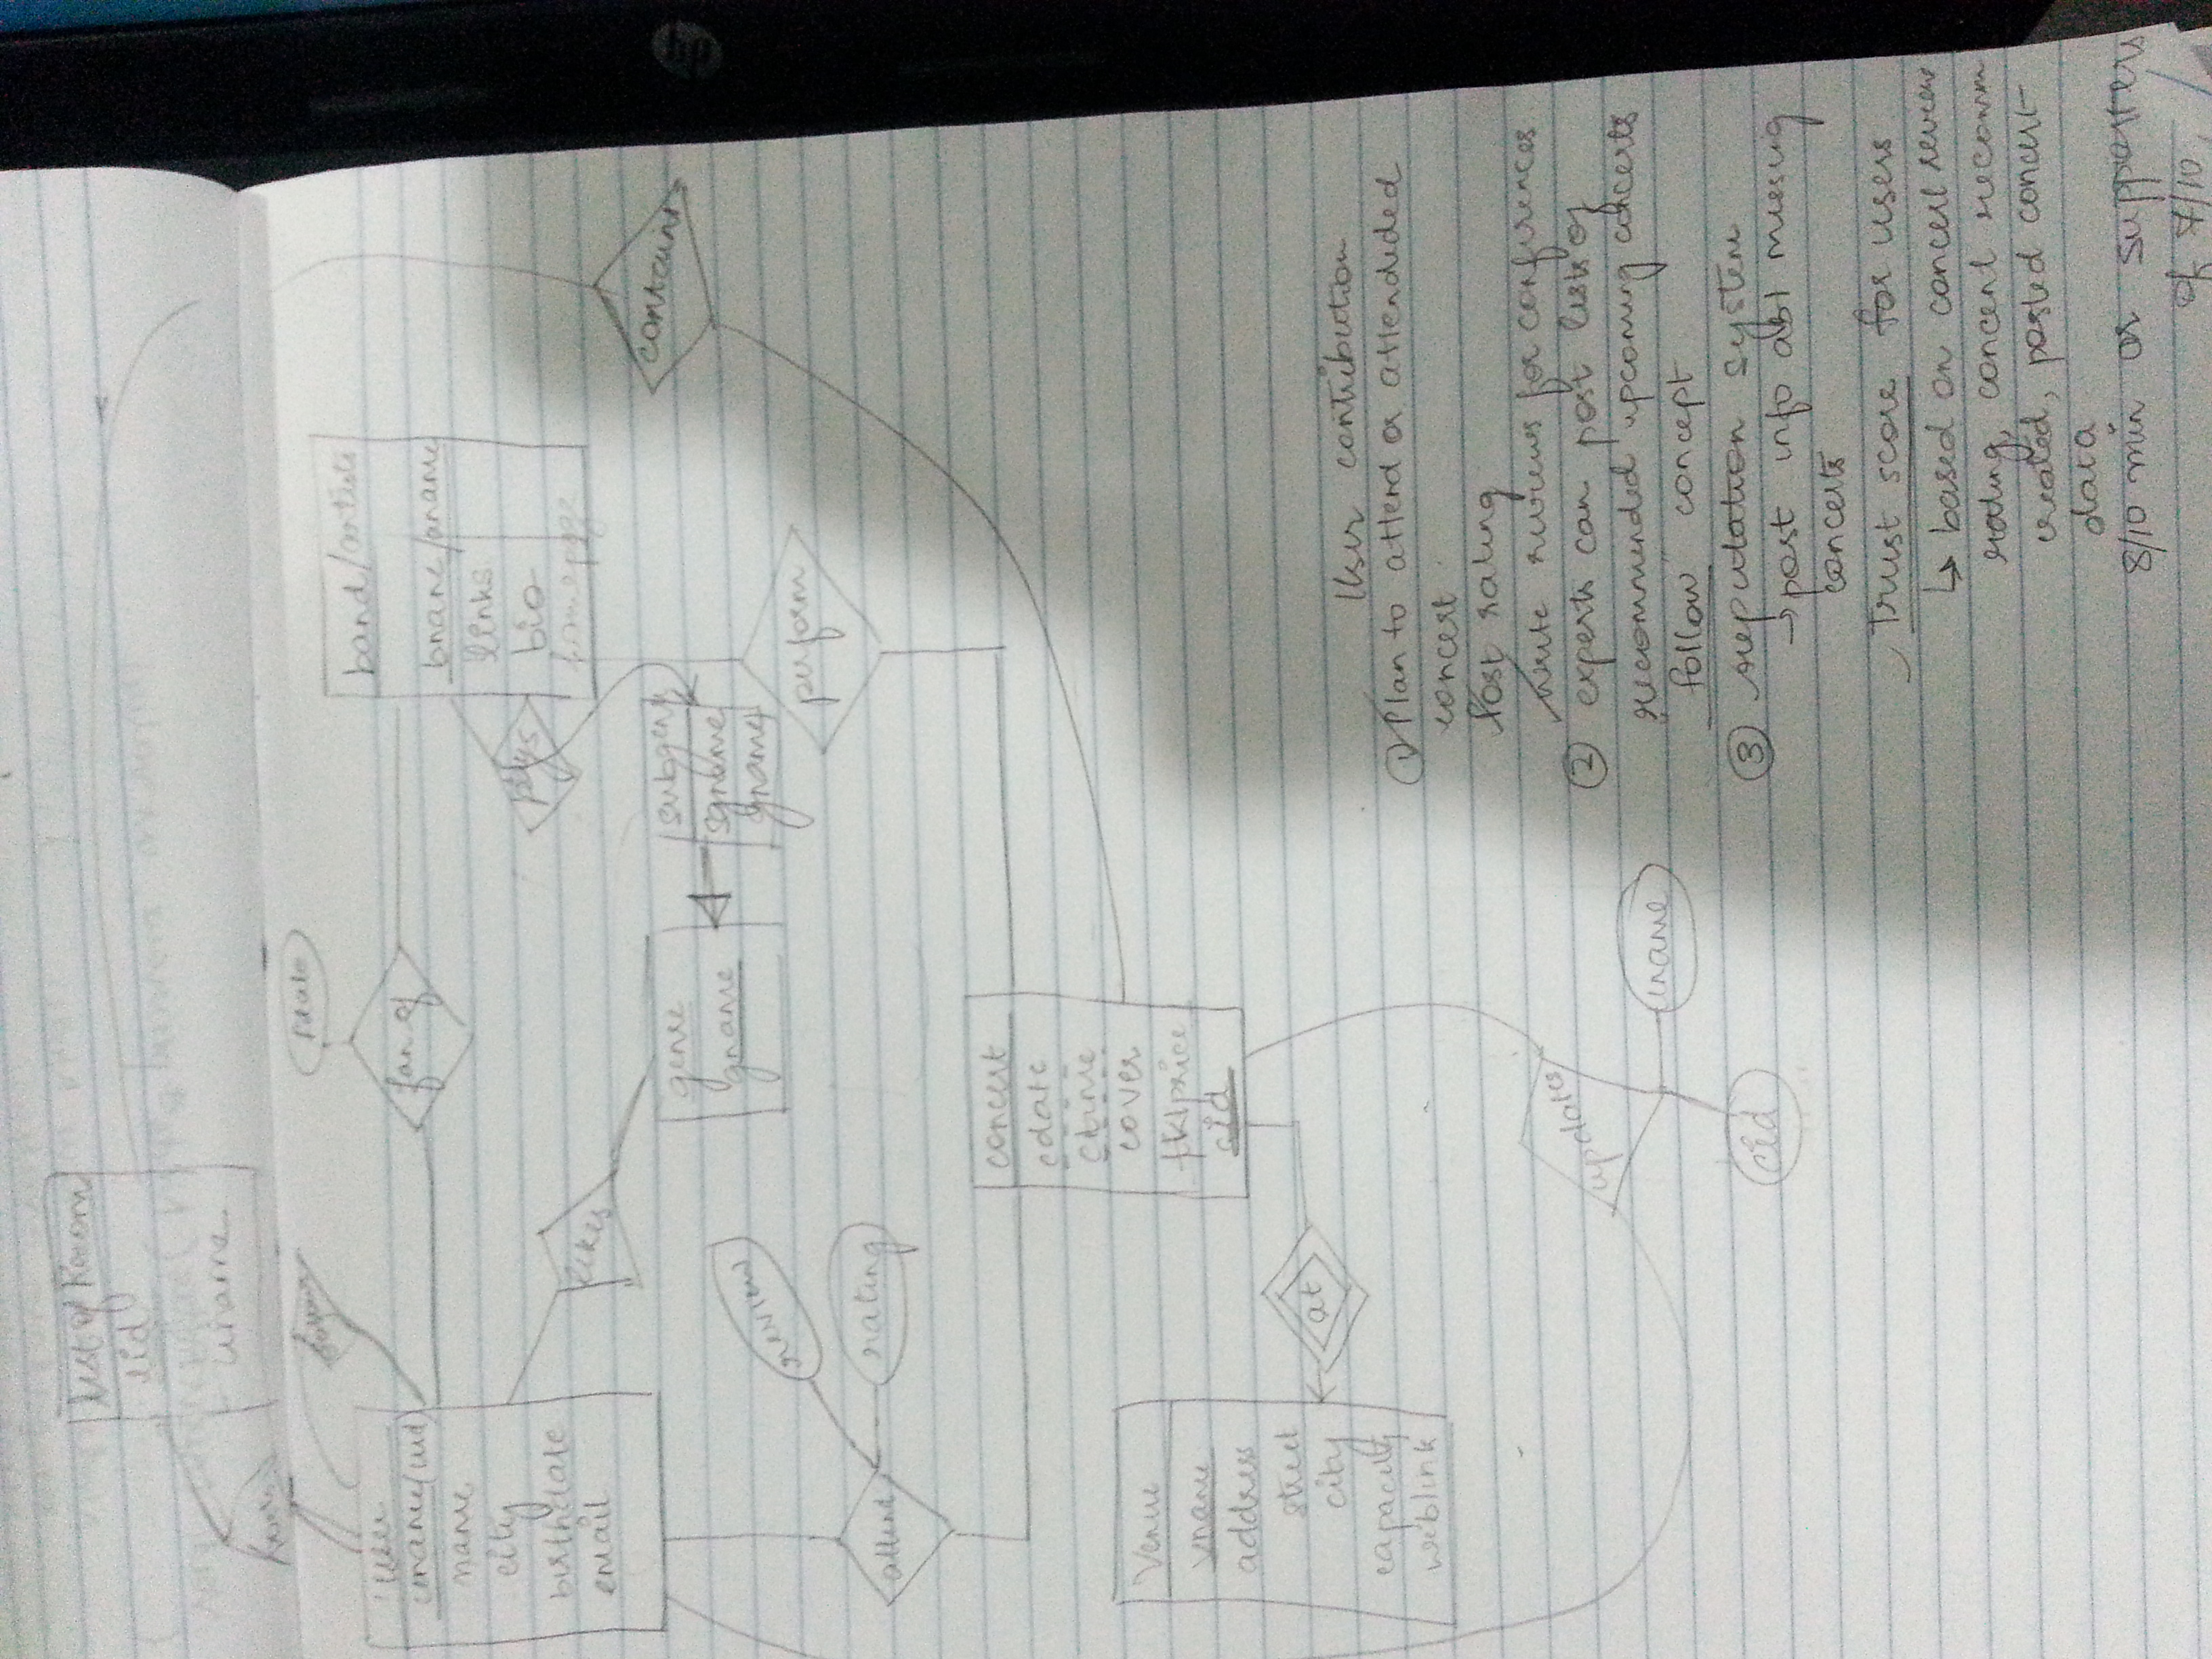 list of Recom
lid
uname
follows
fdate
user
uname(uid)
name
city
birthdate
email
fan of
band/artists
bname/aname
links
bio
homepage
plays
likes
genre
gname
subgenr
sgname
gname
contains
perform
review
rating
attend
concert
cdate
ctime
cover
tktprice
cid
Venue
vname
address
street
city
capacity
weblink
at
updates
uname
cid
User contribution
① Plan to attend or attendeded
concert
Post rating
write reviews for conferences
② experts can post lists of
recommended upcoming concerts
"follow" concept
③ reputation system
→ post info abt missing
concerts
Trust score for users
↳ based on concert review
rating, concert recomm
created, posted concert
data
8/10 min or supporters
of 7/10